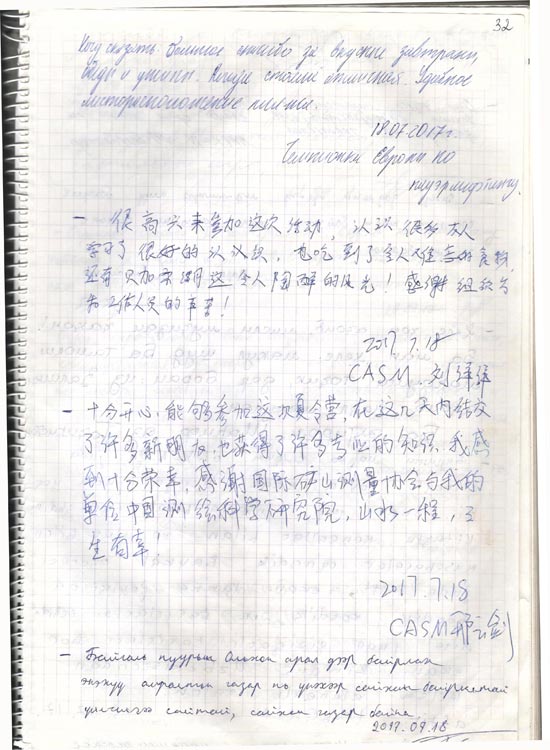 32
Хочу сказать большое спасибо за вкусные завтраки,
обеды и ужины. отличная. Удобное
месторасположение
18.07.2017г.
Чемпионки Европы по
пауэрлифтингу.
— 很高兴来参加这次活动, 认识很多友人
学习了很好的认识, 也吃到了令人难忘的食物,
还有贝加尔湖这令人陶醉的风光! 感谢组织与
为工作人员的辛苦!
2017.7.18
CASM 刘
— 十分开心, 能够参加这次夏令营, 在这几天内结交
了许多新朋友, 也获得了许多专业的知识. 我感
到十分荣幸, 感谢国际矿山测量协会与我的
单位中国测绘科学研究院, 山水一程, 三
生有幸!
2017 7.18
CASM 邢云剑
— Байгаль нуурын Ольхон арал дээр байрлах
энэхүү амралтын газар нь үнэхээр сайхан байрлалтай
үйлчилгээ сайтай, сайхан газар байна.
2017.09.18